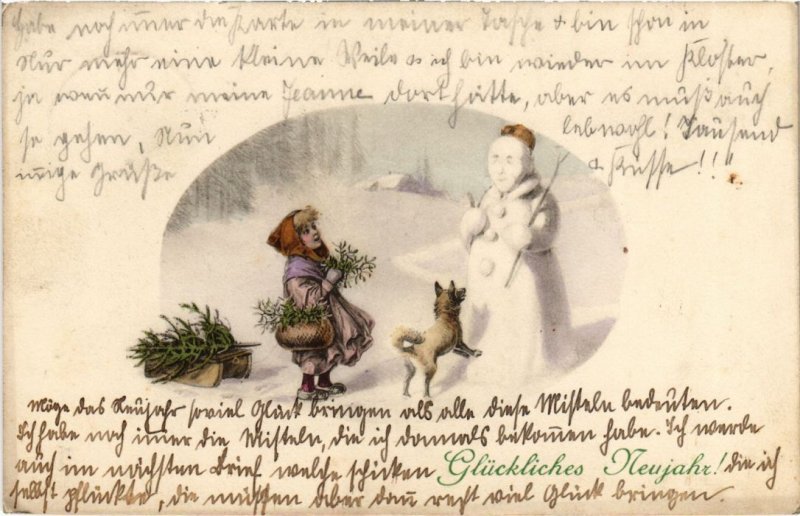 Habe noch immer die Karte in meiner Tasche & bin schon in
Nur mehr eine kleine Weile & ich bin wieder im Kloster,
ja wenn nur meine Jeanne dort hätte, aber es muß auch
so gehen, Nun lebwohl! Tausend
innige Grüße & Küsse!!"
Möge das Neujahr soviel Glück bringen als alle diese Misteln bedeuten.
Ich habe noch imer die Misteln, die ich damals bekommen habe. Ich werde
auch im nächsten Brief welche schicken Glückliches Neujahr! die ich
selbst pflückte, die müssen aber dann recht viel Glück bringen.